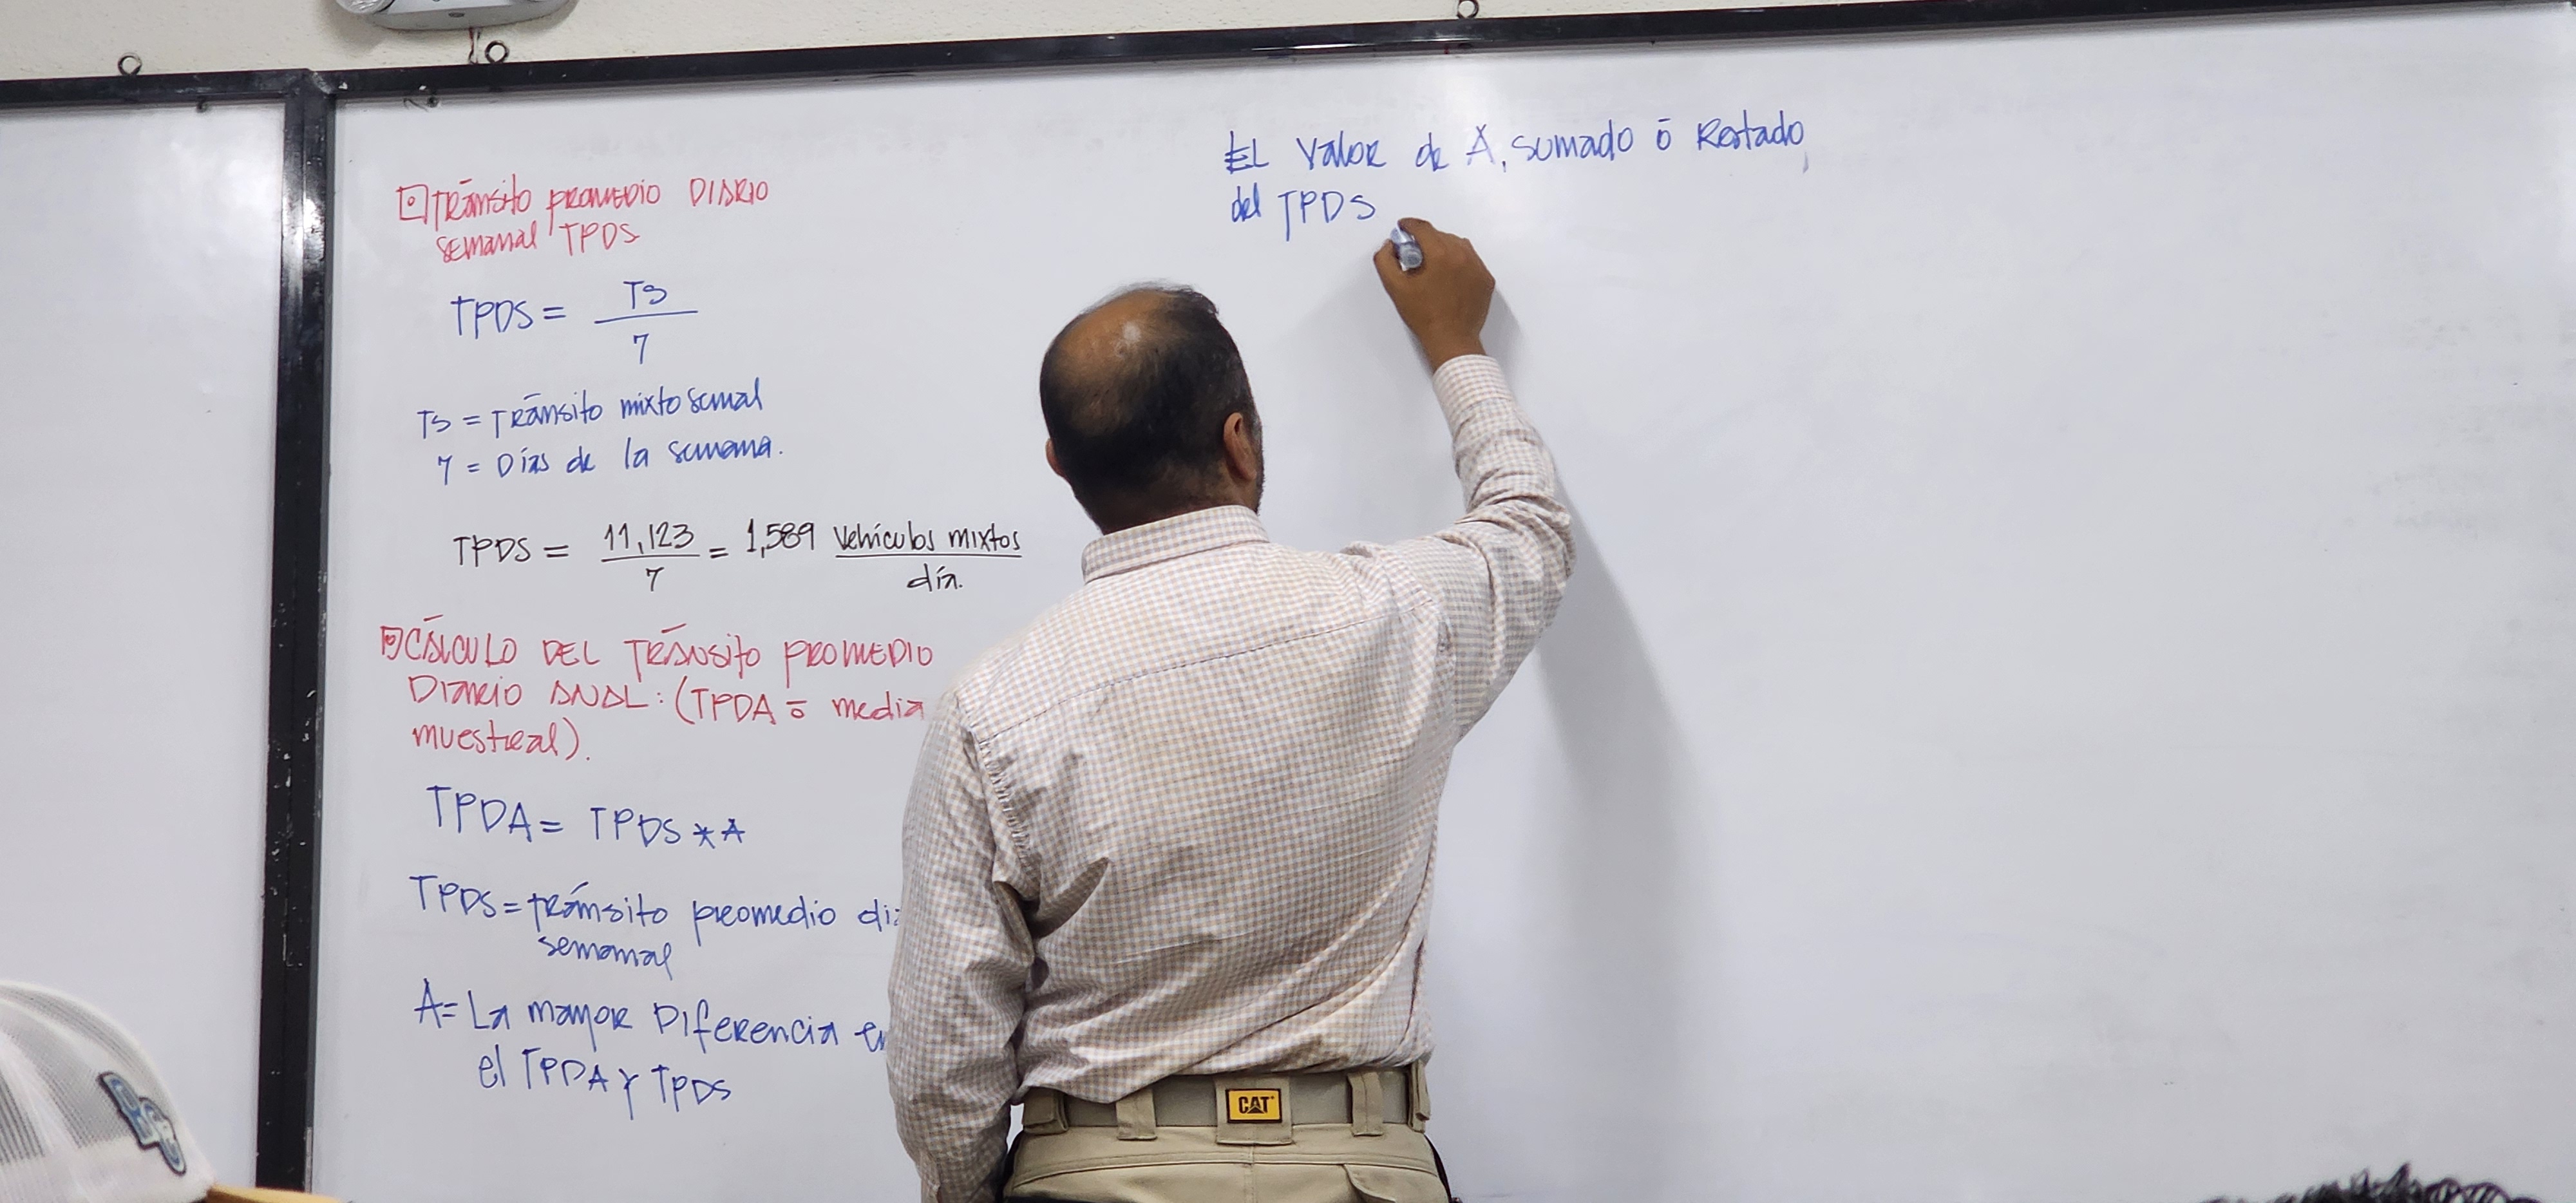 Tránsito PROMEDIO DIARIO
semanal TPDS
TPDS = TS
7
TS = Tránsito mixto semal
7 = Días de la semana.
TPDS = 11,123 = 1,589 Vehículos mixtos
7 día.
CÁLCULO DEL TRÁNSITO PROMEDIO
DIARIO ANUAL: (TPDA ō media
muestral).
TPDA = TPDS * A
TPDS = tránsito promedio
semanal
A = La mayor Diferencia
el TPDA y TPDS
EL Valor de A, sumado ō Restado,
del TPDS
CAT